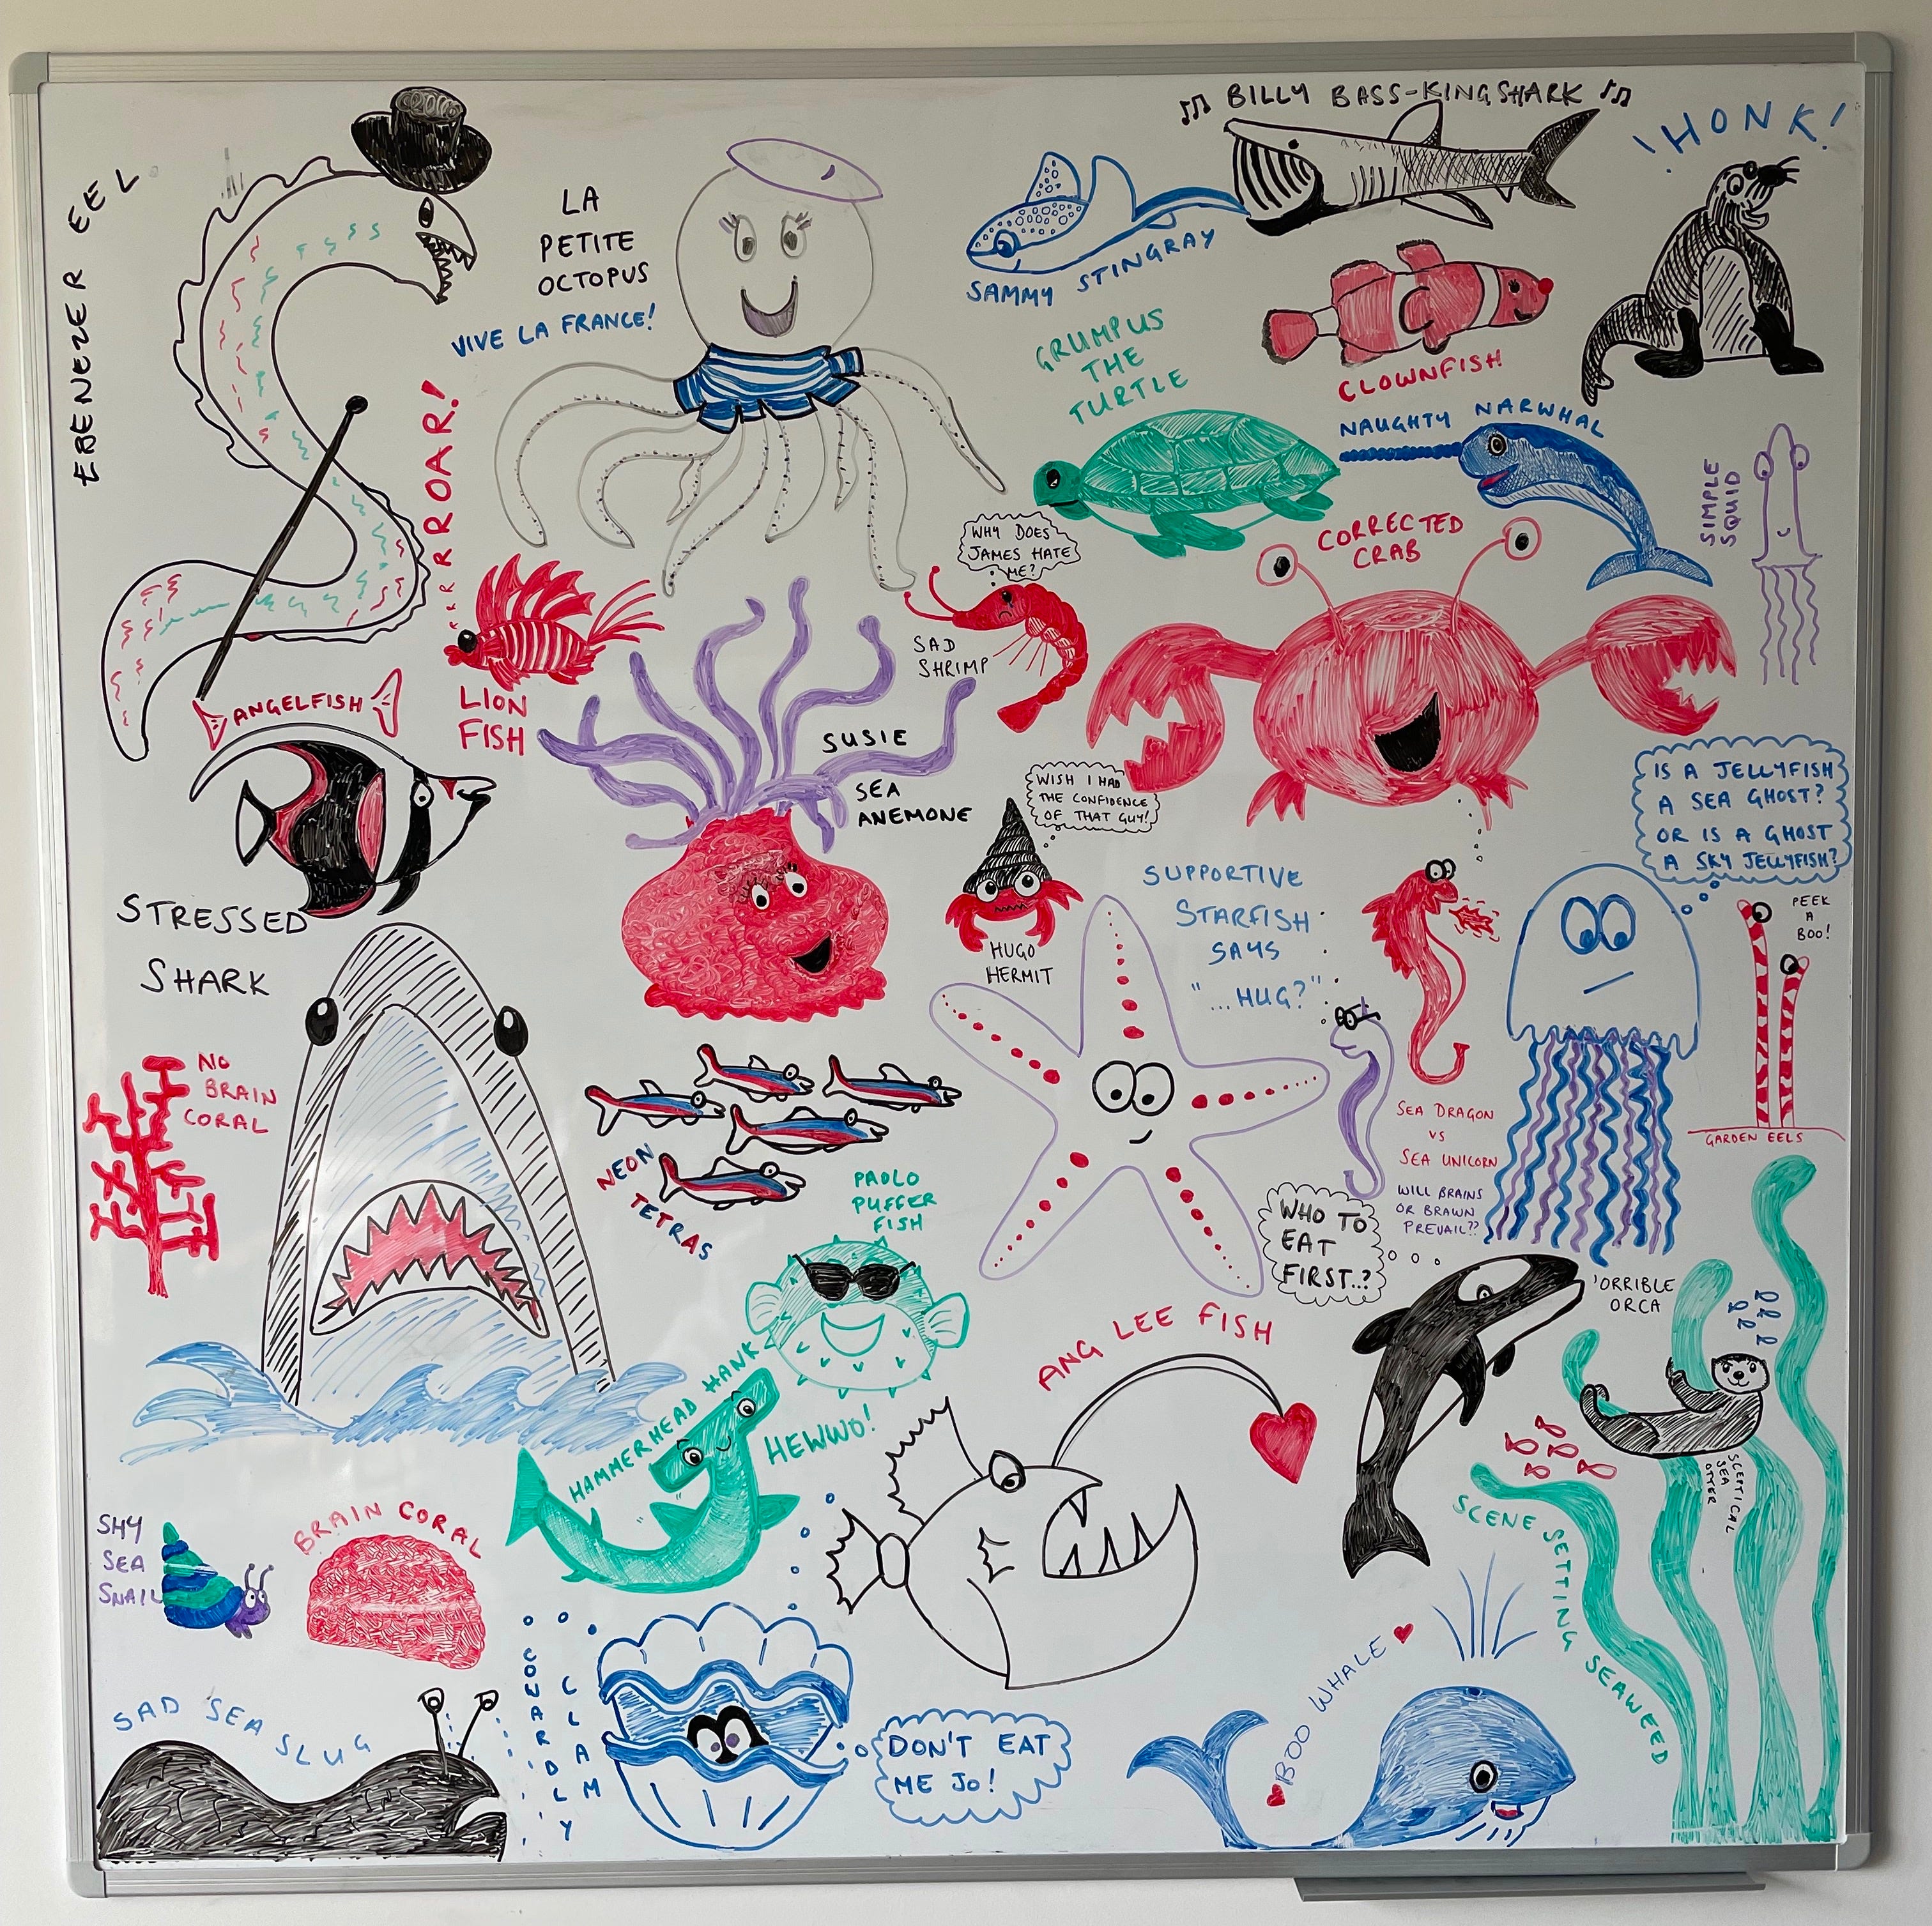 ♪♫ BILLY BASS-KINGSHARK ♪♫
HONK!
EBENEZER EEL
LA
PETITE
OCTOPUS
VIVE LA FRANCE!
SAMMY STINGRAY
GRUMPUS
THE
TURTLE
CLOWNFISH
NAUGHTY NARWHAL
SIMPLE
SQUID
RRROAR!
LION
FISH
WHY DOES
JAMES HATE
ME?
SAD
SHRIMP
CORRECTED
CRAB
ANGELFISH
SUSIE
SEA
ANEMONE
WISH I HAD
THE CONFIDENCE
OF THAT GUY!
HUGO
HERMIT
IS A JELLYFISH
A SEA GHOST?
OR IS A GHOST
A SKY JELLYFISH?
PEEK
A
BOO!
GARDEN EELS
STRESSED
SHARK
SUPPORTIVE
STARFISH
SAYS
"...HUG?"
NO
BRAIN
CORAL
NEON
TETRAS
SEA DRAGON
VS
SEA UNICORN
WILL BRAINS
OR BRAWN
PREVAIL??
PAOLO
PUFFER
FISH
WHO TO
EAT
FIRST..?
'ORRIBLE
ORCA
ANG LEE FISH
HAMMERHEAD HANK
HEWWO!
SCEPTICAL
SEA
OTTER
SCENE SETTING SEAWEED
SHY
SEA
SNAIL
BRAIN CORAL
SAD SEA SLUG
COWARDLY
CLAM
DON'T EAT
ME JO!
BOO WHALE